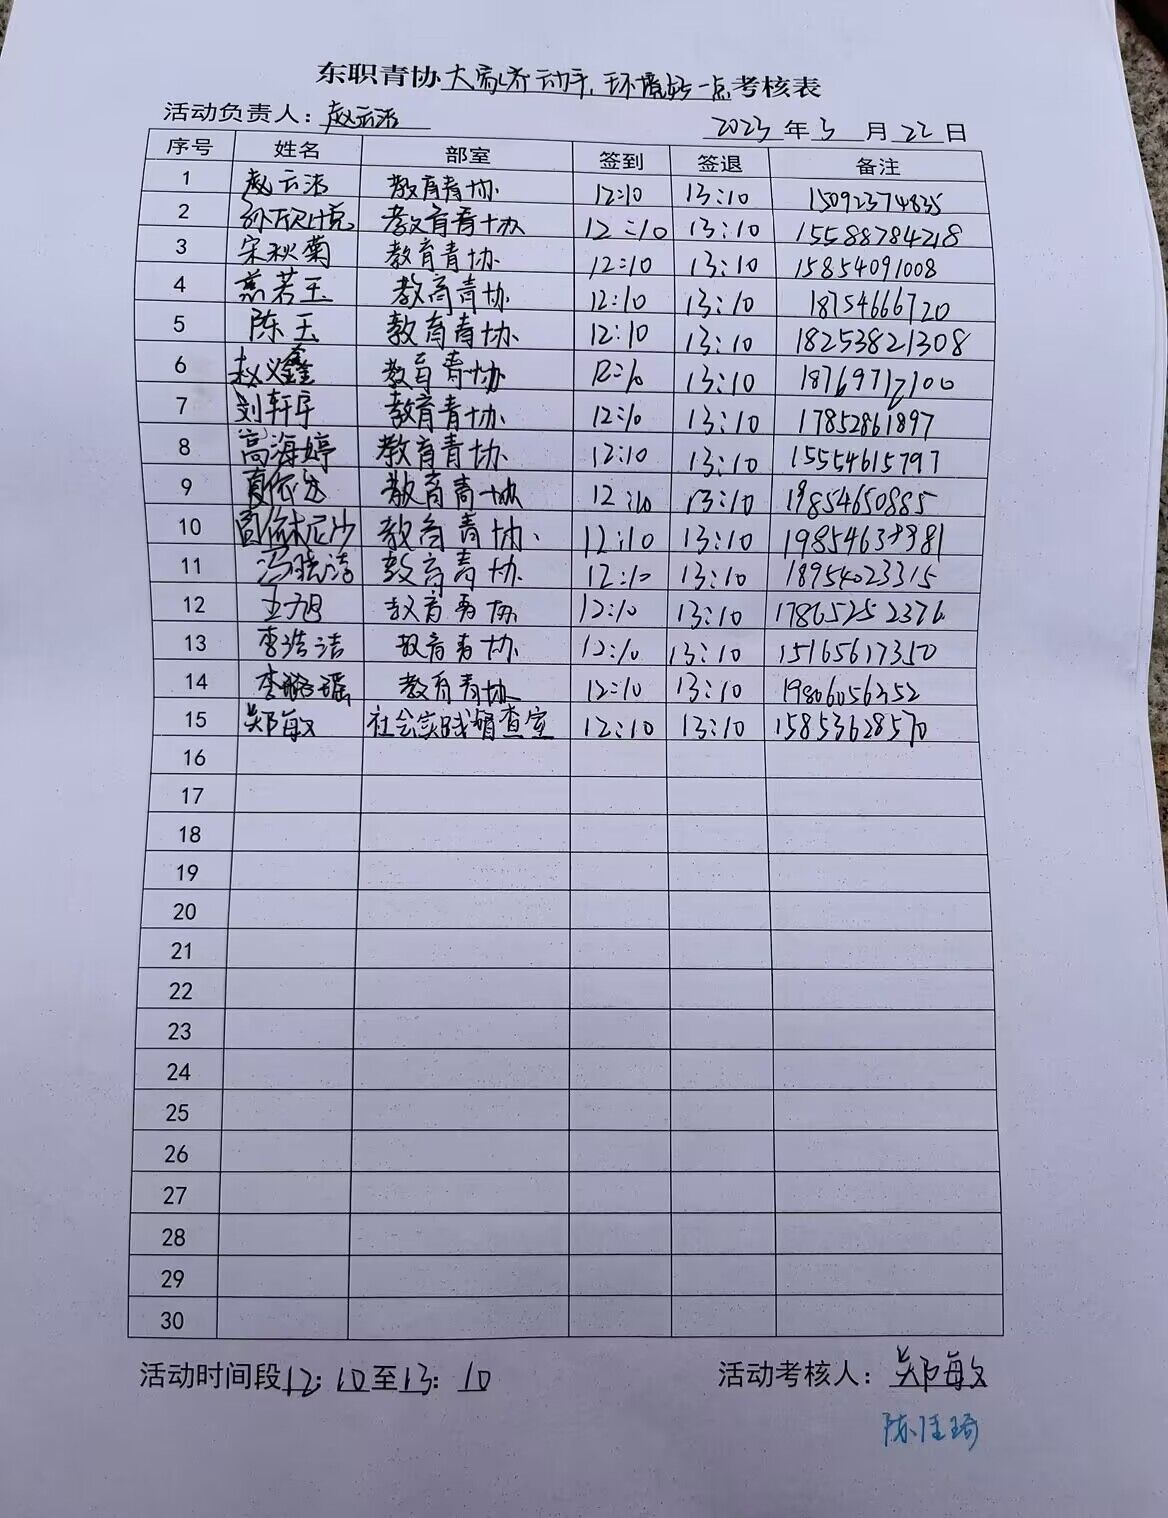 东职青协大家齐动手,环境好一点考核表
活动负责人:赵云洁 2023年3月22日
序号 姓名 部室 签到 签退 备注
1 赵云洁 教育青协 12:10 13:10 15092374835
2 教育青协 12:10 13:10 15588784218
3 宋秋菊 教育青协 12:10 13:10 15854091008
4 燕若玉 教育青协 12:10 13:10 18754666720
5 陈玉 教育青协 12:10 13:10 18253821308
6 赵义鑫 教育青协 12:10 13:10 18769712100
7 刘轩宇 教育青协 12:10 13:10 17852861897
8 高海婷 教育青协 12:10 13:10 15554615797
9 教育青协 12:10 13:10 19854650885
10 教育青协. 12:10 13:10
11 冯晓洁 教育青协 12:10 13:10 18954023315
12 王旭 教育青协 12:10 13:10 17865252376
13 李浩洁 教育青协 12:10 13:10 15165617350
14 李璐瑶 教育青协 12:10 13:10 19806056352
15 郑敏 社会实践稽查室 12:10 13:10 15853628570
16
17
18
19
20
21
22
23
24
25
26
27
28
29
30
活动时间段12:10至13:10 活动考核人:郑敏
陈佳琦